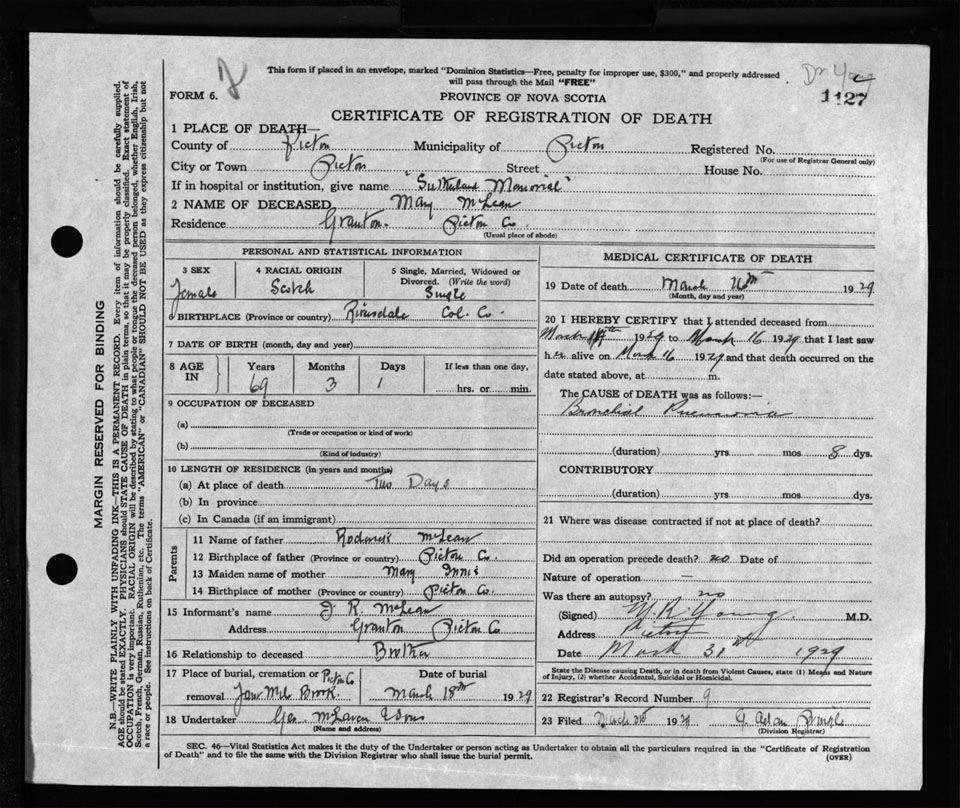 This form if placed in an envelope, marked "Dominion Statistics—Free, penalty for improper use, $300," and properly addressed
will pass through the Mail "FREE"
FORM 6.
PROVINCE OF NOVA SCOTIA
1127
CERTIFICATE OF REGISTRATION OF DEATH
1 PLACE OF DEATH—
County of Pictou Municipality of Pictou Registered No.
(For use of Registrar General only)
City or Town Pictou Street House No.
If in hospital or institution, give name "Sutherland Memorial"
2 NAME OF DECEASED Mary McLean
Residence Granton. Pictou Co.
(Usual place of abode)
PERSONAL AND STATISTICAL INFORMATION
3 SEX Female
4 RACIAL ORIGIN Scotch
5 Single, Married, Widowed or Divorced. (Write the word) Single
6 BIRTHPLACE (Province or country) Riversdale Col. Co.
7 DATE OF BIRTH (month, day and year)
8 AGE IN Years 69 Months 3 Days 1 If less than one day, hrs. or min.
9 OCCUPATION OF DECEASED
(a)
(Trade or occupation or kind of work)
(b)
(Kind of industry)
10 LENGTH OF RESIDENCE (in years and months)
(a) At place of death Two Days
(b) In province
(c) In Canada (if an immigrant)
Parents
11 Name of father Roderick McLean
12 Birthplace of father (Province or country) Pictou Co.
13 Maiden name of mother Mary Innis
14 Birthplace of mother (Province or country) Pictou Co.
15 Informant's name J. R. McLean
Address Granton Pictou Co
16 Relationship to deceased Brother
17 Place of burial, cremation or Pictou Co
removal Four Mile Brook. March 18th 1929
18 Undertaker Geo. McLaren & Sons
(Name and address)
MEDICAL CERTIFICATE OF DEATH
19 Date of death March 16th 1929
(Month, day and year)
20 I HEREBY CERTIFY that I attended deceased from
March 1929 to March 16 1929 that I last saw
her alive on March 16 1929 and that death occurred on the
date stated above, at m.
The CAUSE of DEATH was as follows:—
Bronchial Pneumonia
(duration) yrs mos 8 dys.
CONTRIBUTORY
(duration) yrs. mos. dys.
21 Where was disease contracted if not at place of death?
Did an operation precede death? no Date of
Nature of operation —
Was there an autopsy? no
(Signed) M. R. Young M.D.
Address Pictou
Date March 31st 1929
State the Disease causing Death, or in death from Violent Causes, state (1) Means and Nature
of Injury, (2) whether Accidental, Suicidal or Homicidal.
22 Registrar's Record Number 9
23 Filed March 31st 1929 G. Allan
(Division Registrar)
SEC. 46—Vital Statistics Act makes it the duty of the Undertaker or person acting as Undertaker to obtain all the particulars required in the "Certificate of Registration
of Death" and to file the same with the Division Registrar who shall issue the burial permit. (OVER)
MARGIN RESERVED FOR BINDING
N.B.—WRITE PLAINLY WITH UNFADING INK—THIS IS A PERMANENT RECORD. Every item of information should be carefully supplied.
AGE should be stated EXACTLY. PHYSICIANS should STATE CAUSE OF DEATH in plain terms, so that it may be properly classified. Exact statement of
OCCUPATION is very important. RACIAL ORIGIN will be described by stating to what people or tongue the deceased person belonged, whether English, Irish,
Scotch, French, German, Russian, Ruthenian, etc. The terms "AMERICAN" or "CANADIAN" SHOULD NOT BE USED as they express citizenship but not
a race or people. See instructions on back of Certificate.